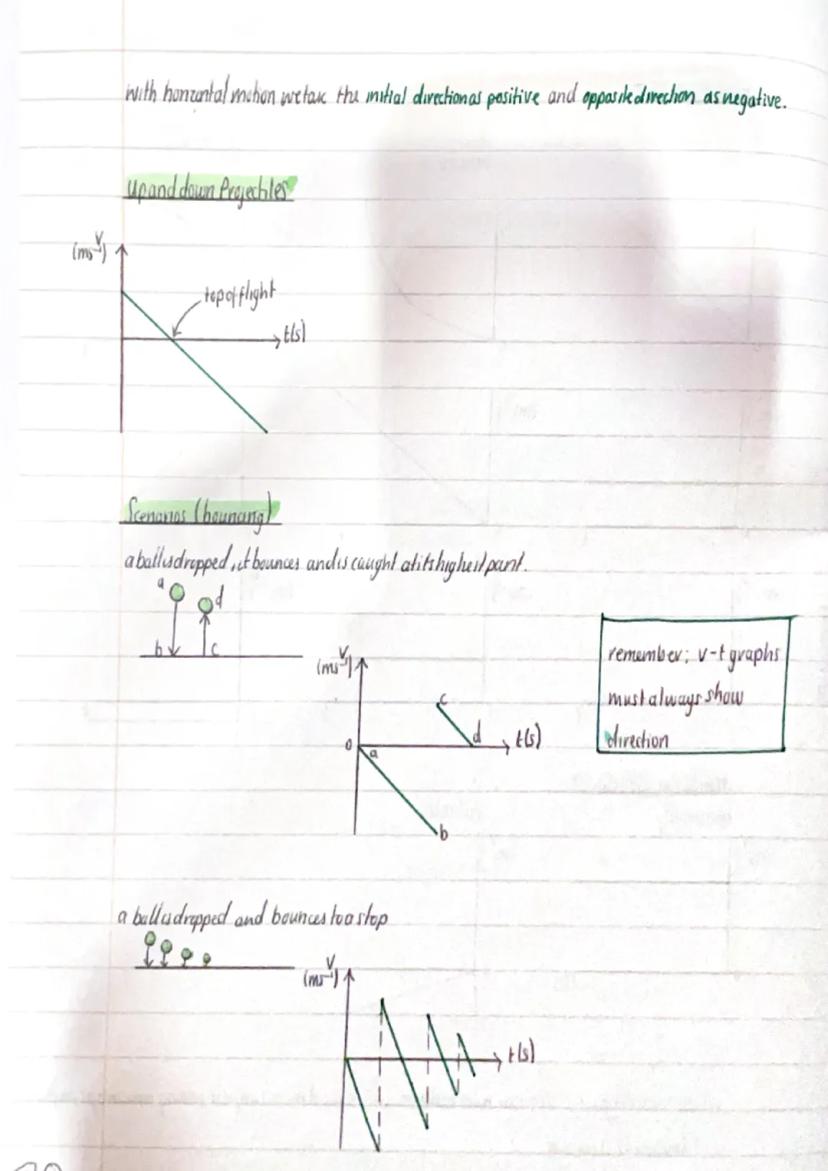 with horizontal motion we take the initial direction as positive and opposite direction as negative.
Up and down Projectiles
V
(ms⁻¹)
top of flight
t(s)
Scenarios (bouncing)
a ball is dropped, it bounces and is caught at its highest point.
a
d
b
c
V
(ms⁻¹)
c
d
t(s)
0
a
b
remember: v-t graphs
must always show
direction
a ball is dropped and bounces to a stop
V
(ms⁻¹)
t(s)